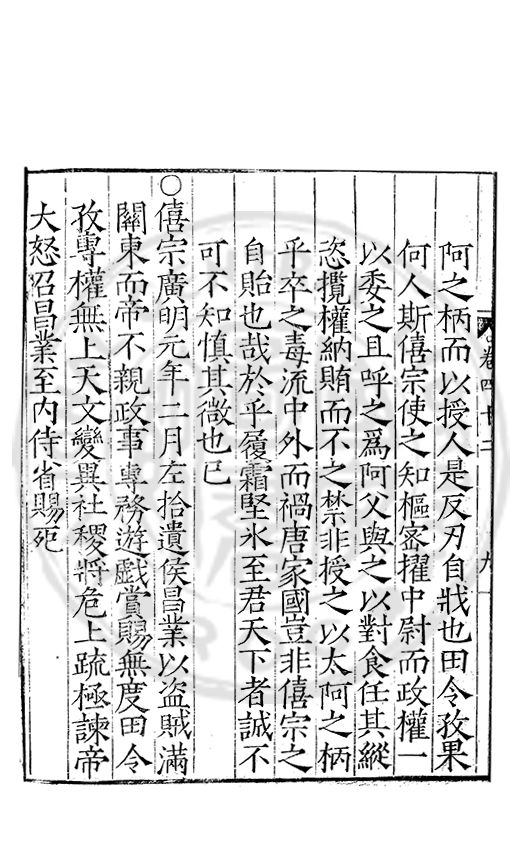 卷四十二
九
阿之柄而以授人是反刃自戕也田令孜果
何人斯僖宗使之知樞密擢中尉而政權一
以委之且呼之爲阿父與之以對食任其縱
恣攬權納賄而不之禁非授之以太阿之柄
乎卒之毒流中外而禍唐家國豈非僖宗之
自貽也哉於乎履霜堅氷至君天下者誠不
可不知慎其微也已
○僖宗廣明元年二月左拾遺侯昌業以盜賊滿
關東而帝不親政事專務遊戲賞賜無度田令
孜專權無上天文變異社稷將危上疏極諫帝
大怒召昌業至内侍省賜死